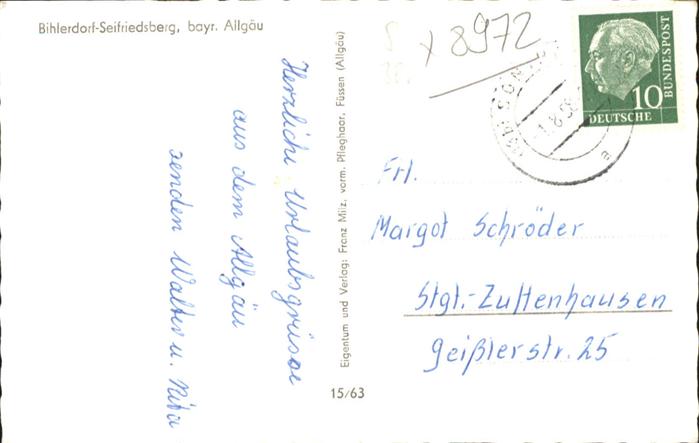 Bihlerdorf-Seifriedsberg, bayr. Allgäu
Herzliche Urlaubsgrüsse
aus dem Allgäu
senden Walter u. Rita
Eigentum und Verlag: Franz Milz, vorm. Pfleghaar, Füssen (Allgäu)
15/63
x 8972
10
DEUTSCHE
BUNDESPOST
Frl.
Margot Schröder
Stgt.-Zuffenhausen
Geißlerstr. 25